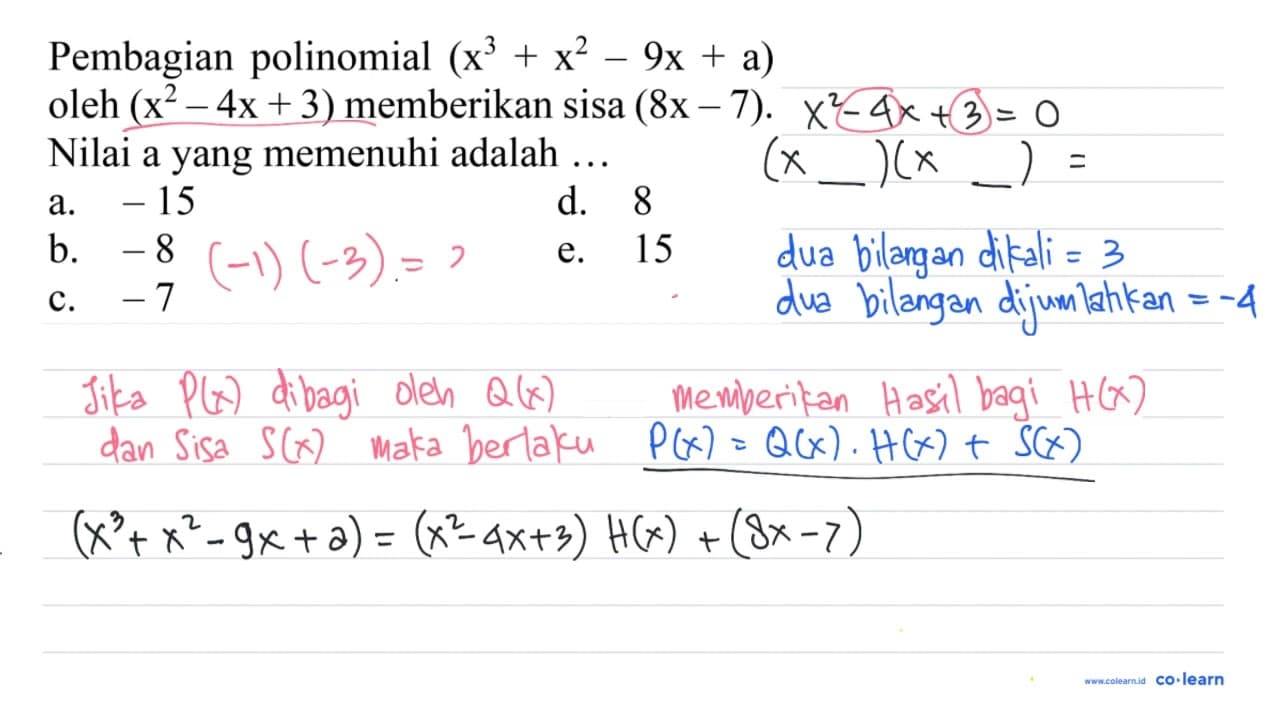 Pembagian polinomial (x³ + x² – 9x + a)
oleh (x² – 4x + 3) memberikan sisa (8x – 7).
Nilai a yang memenuhi adalah ...
a. – 15
b. – 8
c. – 7
d. 8
e. 15
(-1) (-3) = 3
x² - 4x + 3 = 0
(x __ )(x __ ) =
dua bilangan dikali = 3
dua bilangan dijumlahkan = -4
Jika P(x) dibagi oleh Q(x) memberikan Hasil bagi H(x)
dan Sisa S(x) maka berlaku P(x) = Q(x) . H(x) + S(x)
(x³ + x² - 9x + a) = (x² - 4x + 3) H(x) + (8x - 7)
www.colearn.id co·learn